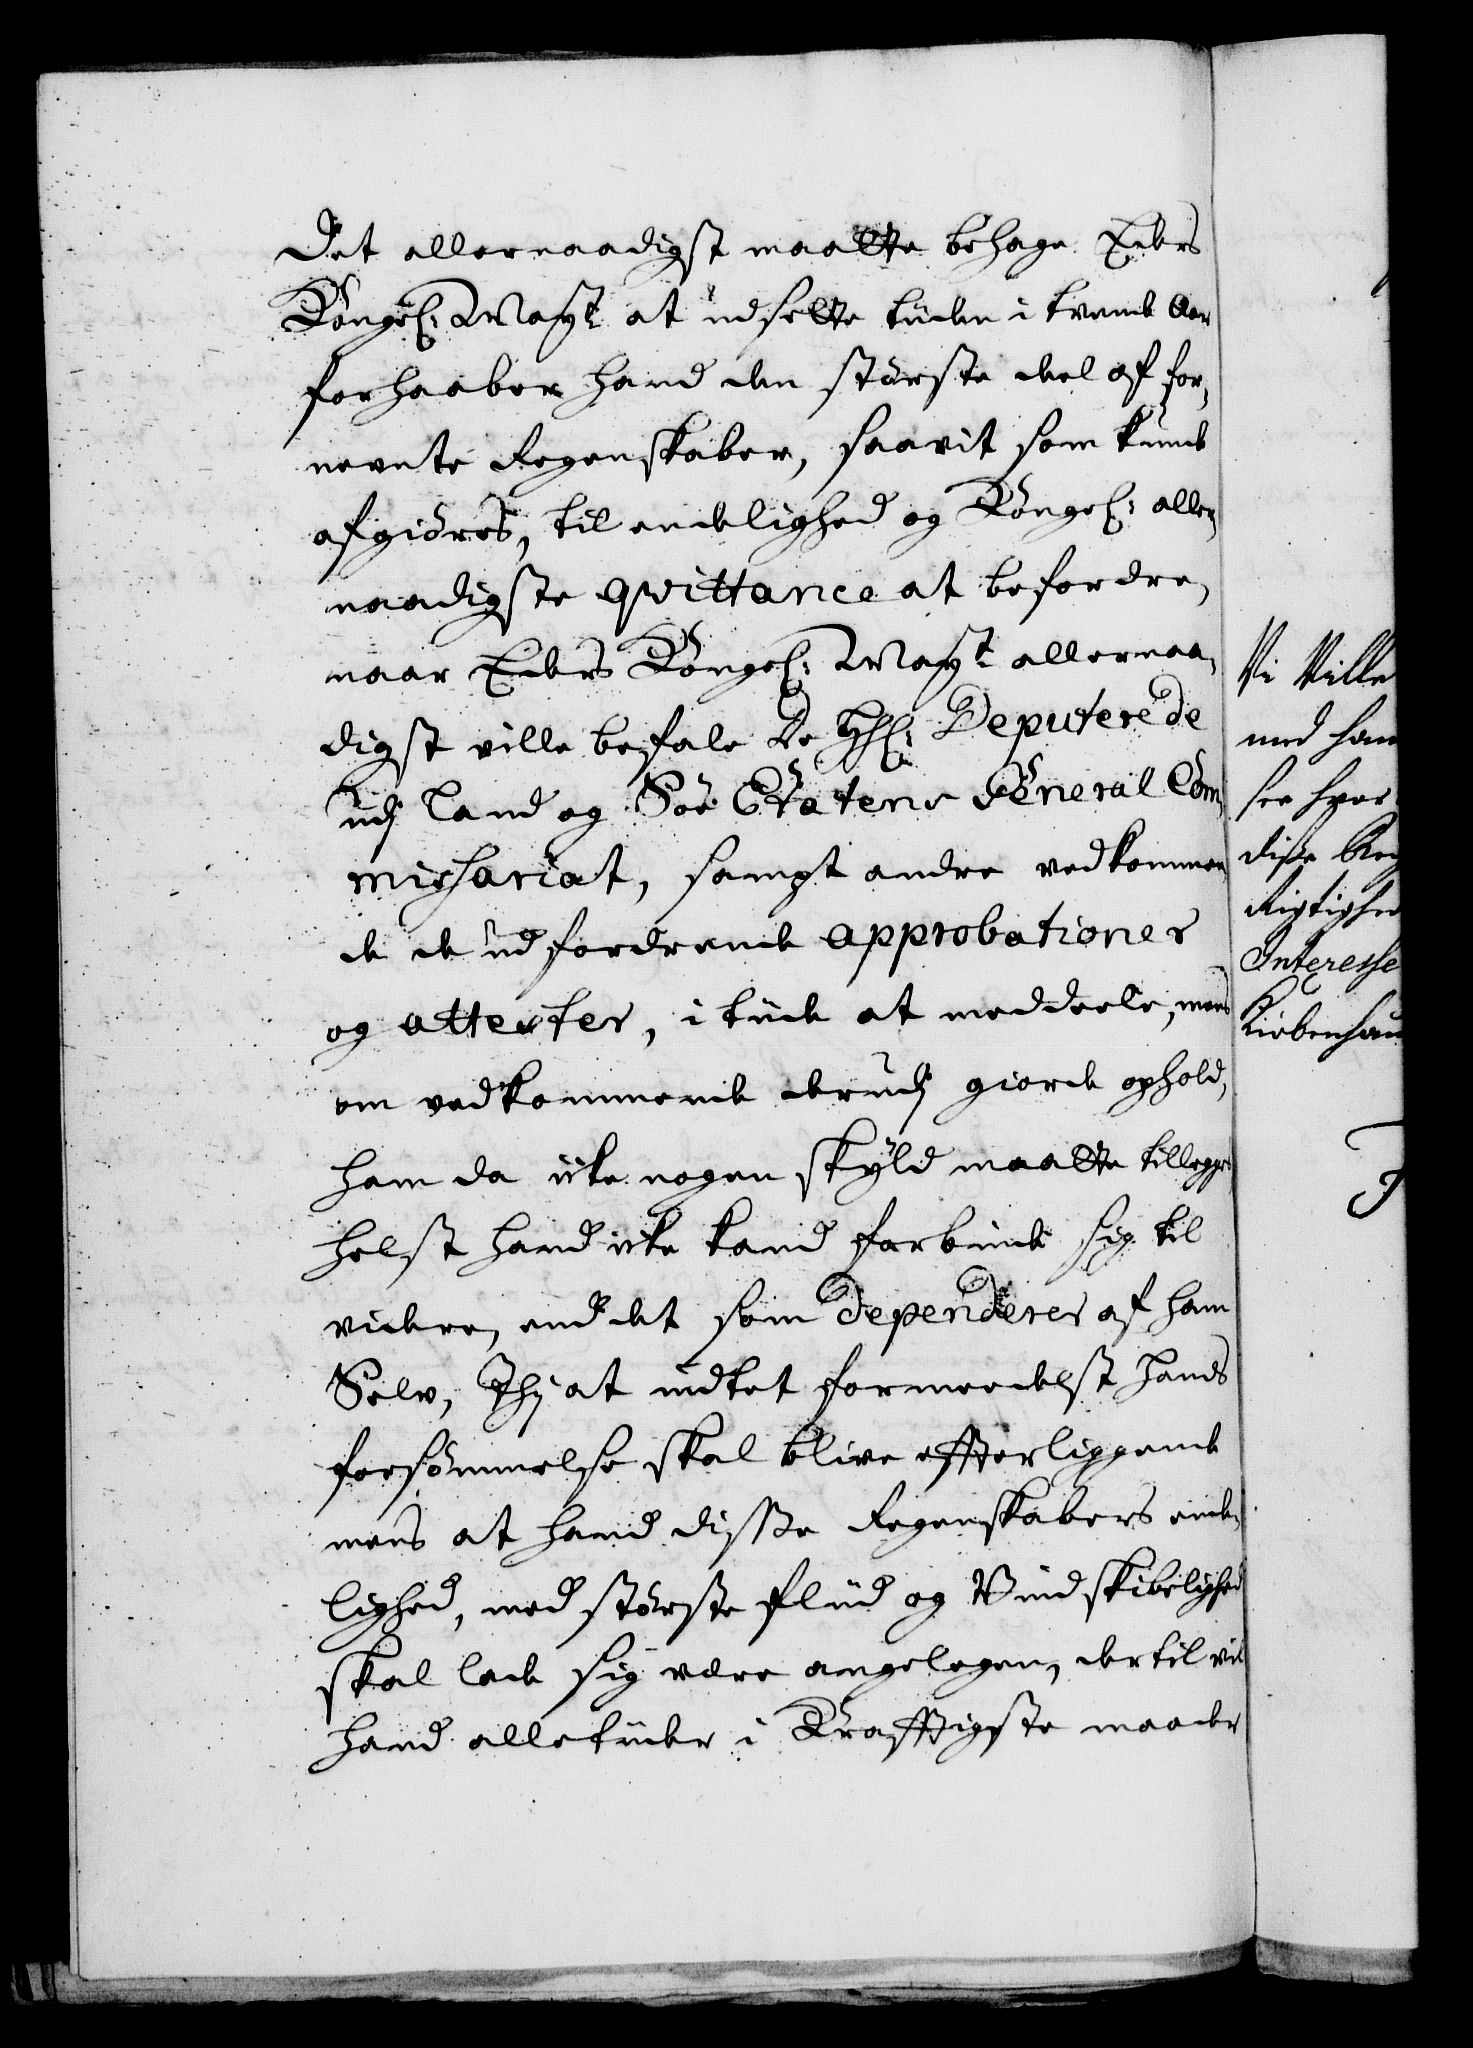 Det allernaadigst maatte behage Eders
Kongel: Mayt at udsette tiden i trende Aar
forhaaber hand den störste deel af for,
nevnte Regenskaber, saavit som kunde
afgiöres, til endelighed og Kongel: aller,
naadigste qvittance at befordre,
naar Eders Kongel: Mayt allernaa,
digst ville befale De Hl: Deputerede
udj Land og Söe Etatens General Com,
missariat, sampt andre vedkommen,
de de udfordrende approbationer
og attester, i tide at meddeele, mens
om vedkommende derudj giorde ophold,
ham da icke nogen skyld maatte tillegges
helst hand icke kand forbinde sig til
videre, end det som dependerer af ham
Selv, Thj at indtet formeedelst hands
forsömmelse skal blive effterliggende
mens at hand disse Regenskabers ende,
lighed, med störste fliid og Vindskibelighed
skal lade sig være angelegen, dertil vil
hand alletider i Krafftigste maader
Vi Ville
med ham
see hvor
disse Reg
Rigtighed
Interesse
Kiöbenhau